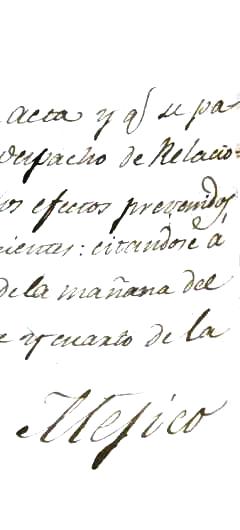 acta y q̃ se pa-
despacho de Relacio=
os efectos prevenidos
nientes: citandose á
de la mañana del
e y cuarto de la
Mejico